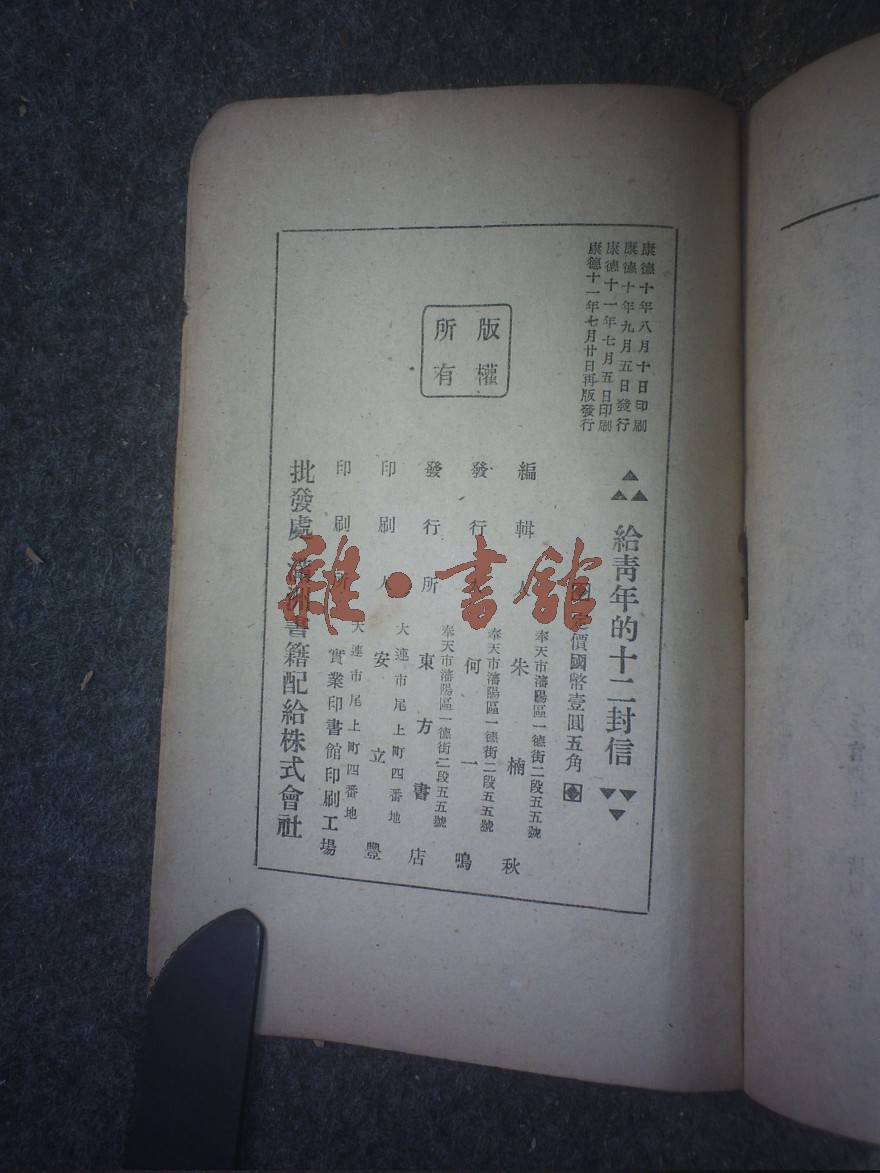 康德十年八月十日印刷
康德十年九月五日發行
康德十一年七月五日印刷
康德十一年七月廿日再版發行
給青年的十二封信
定價國幣壹圓五角
版權
所有
編輯人 朱楠秋
奉天市瀋陽區一德街二段五五號
發行人 何一鳴
奉天市瀋陽區一德街二段五五號
發行所 東方書店
奉天市瀋陽區一德街二段五五號
印刷人 安立豐
大連市尾上町四番地
印刷所 實業印書館印刷工場
大連市尾上町四番地
批發處 滿洲書籍配給株式會社
雜·書館